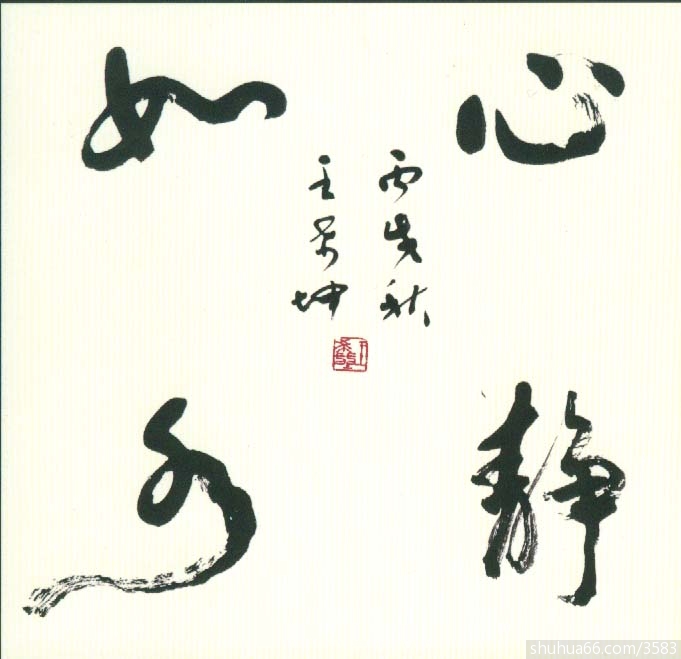 心静
如水
丙戌秋
王景坤
shuhua66.com/3583